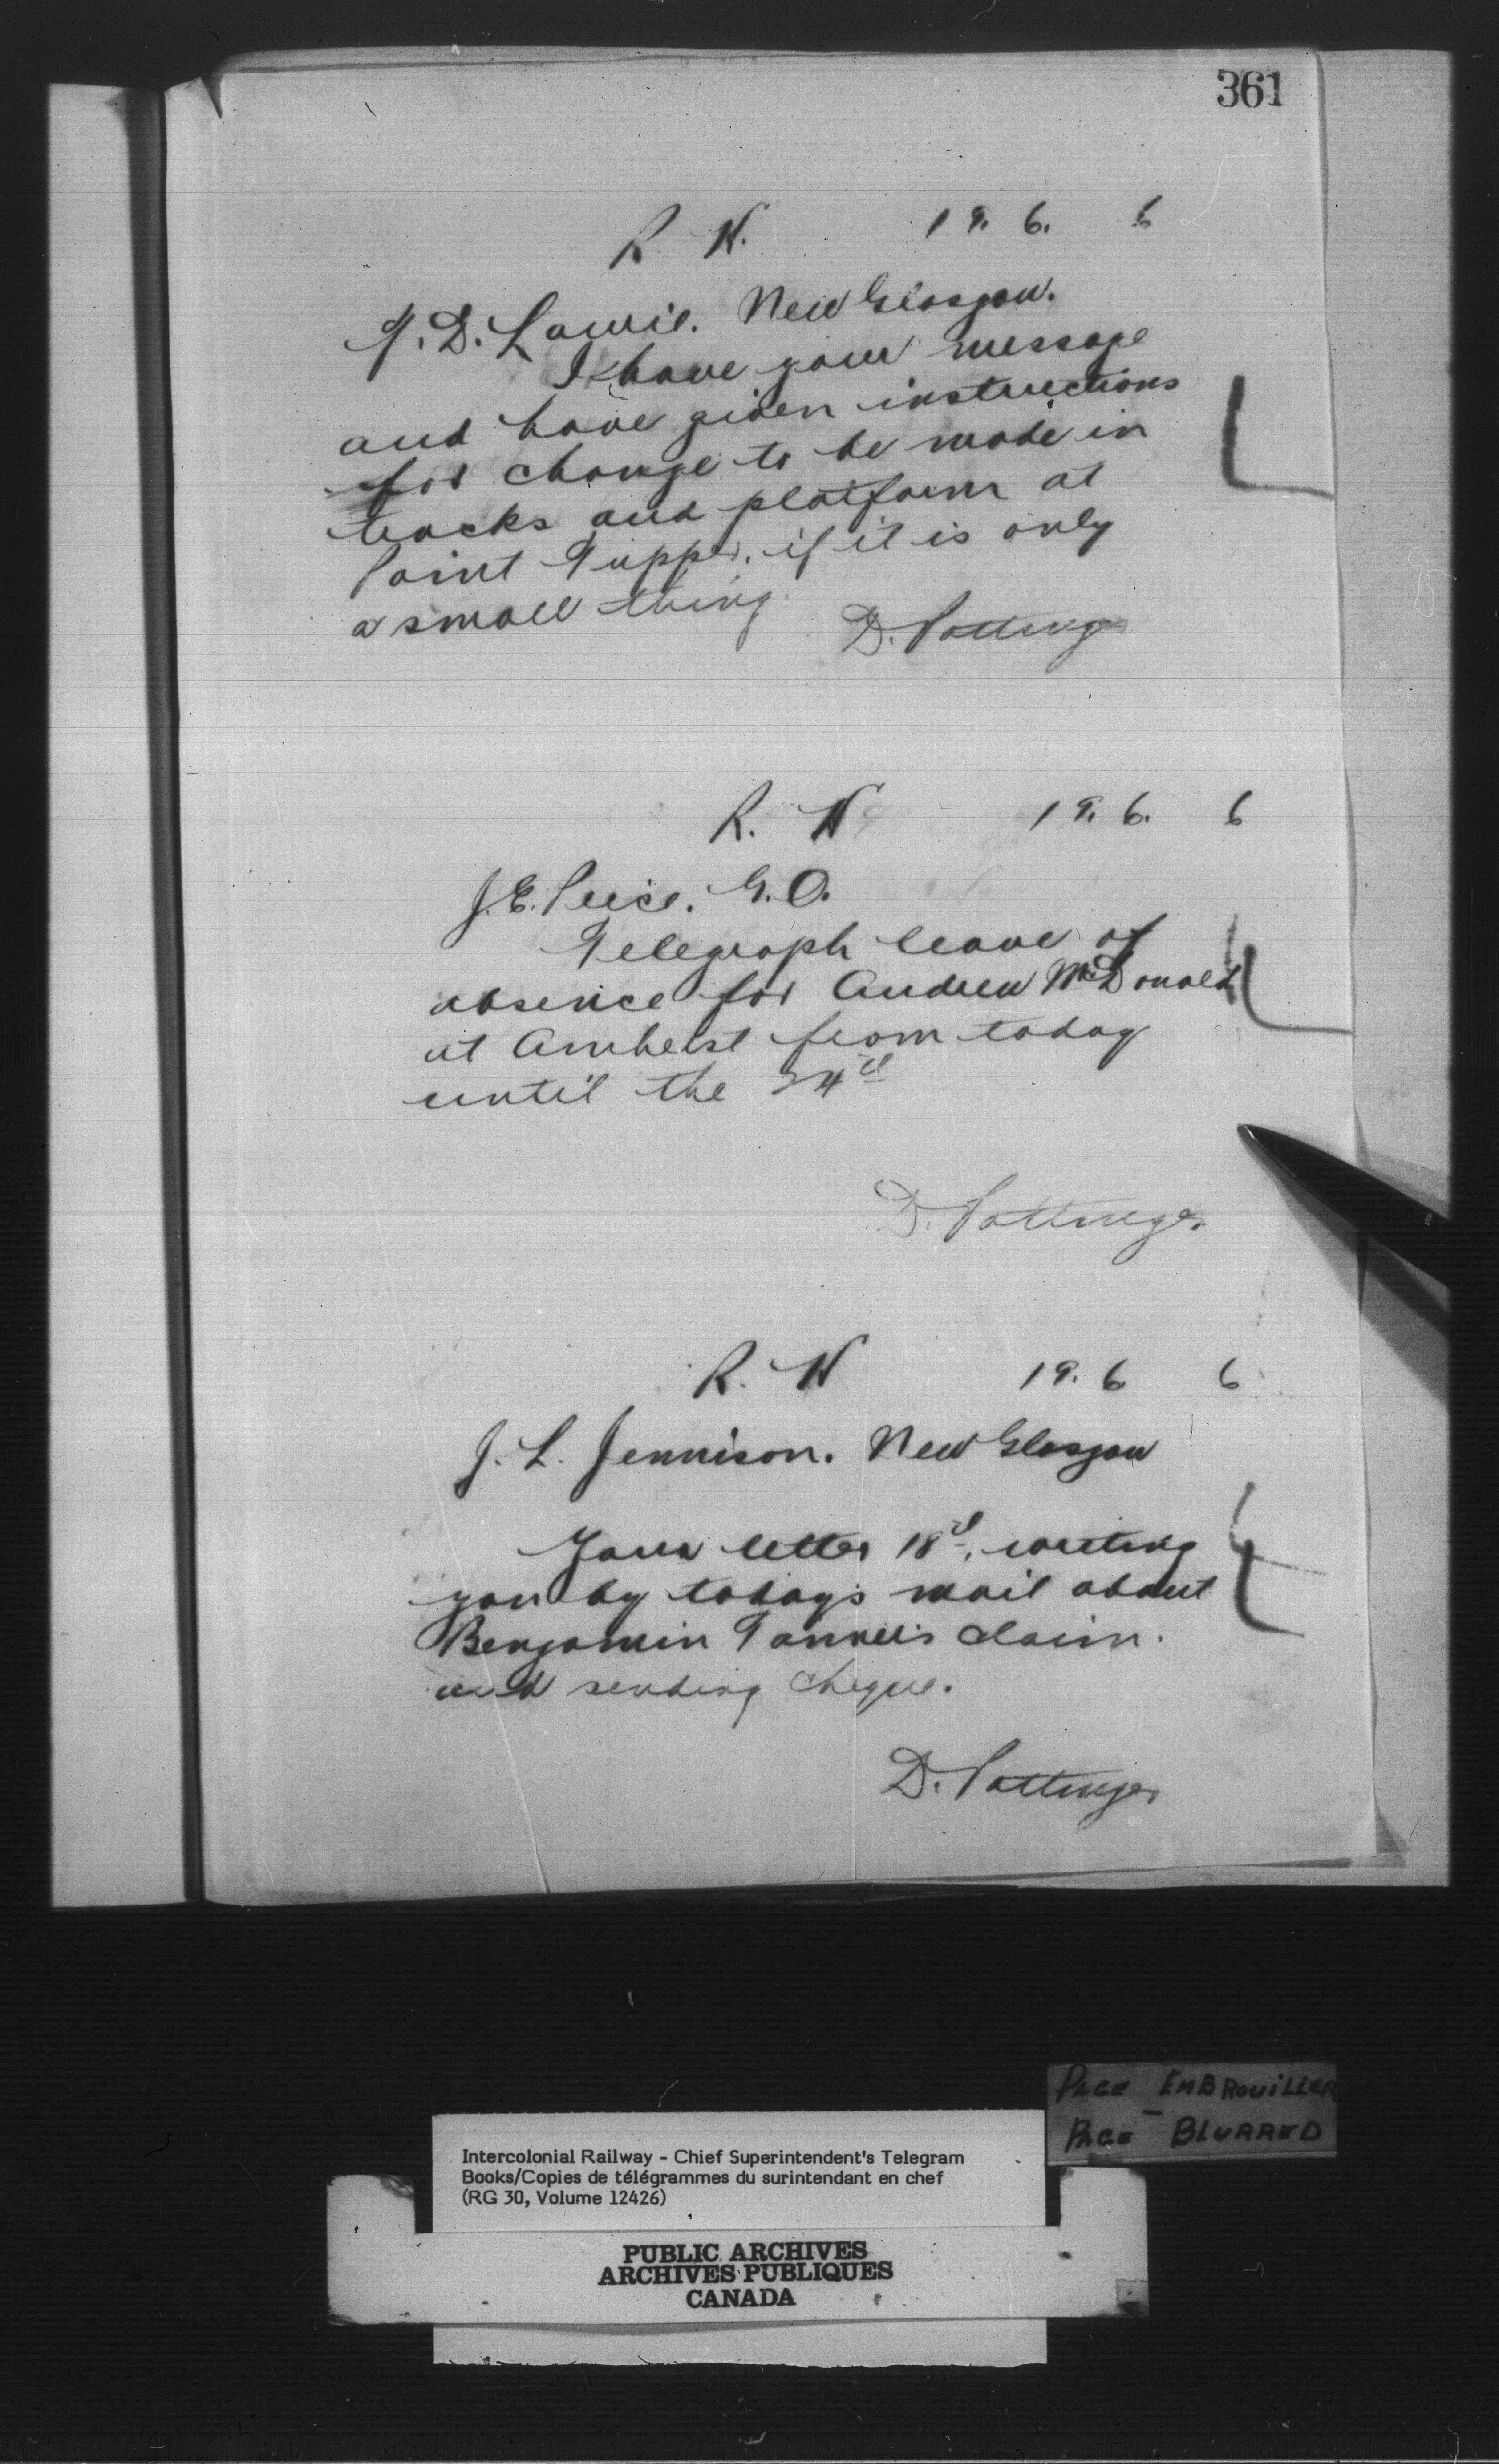 361
R. N. 19. 6. 6
Y. D. Lawrie. New Glasgow.
I have your message
and have given instructions
for change to be made in
tracks and platform at
Point Tupper, if it is only
a small thing.
D. Pottinger
R. N 19. 6. 6
J. E. Price. G. O.
Telegraph leave of
absence for Andrew McDonald
at Amherst from today
until the 24th
D. Pottinger
R. N 19. 6 6
J. L. Jennison. New Glasgow
Your letter 18th, writing
you by todays mail about
Benjamin Tanner's claim.
and sending cheque.
D. Pottinger
PAGE EMBROUILLER
PAGE - BLURRED
Intercolonial Railway - Chief Superintendent's Telegram
Books/Copies de télégrammes du surintendant en chef
(RG 30, Volume 12426)
PUBLIC ARCHIVES
ARCHIVES PUBLIQUES
CANADA